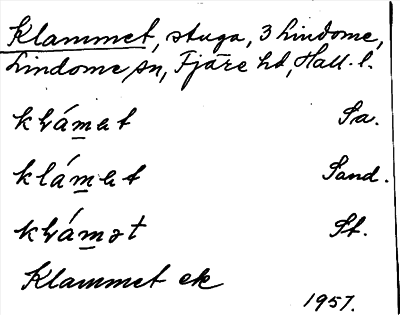 Klammet, stuga, 3 Lindome,
Lindome sn, Fjäre hd, Hall. l.
klámet Sa.
klámet Sand.
klámət St.
Klammet ek
1957.